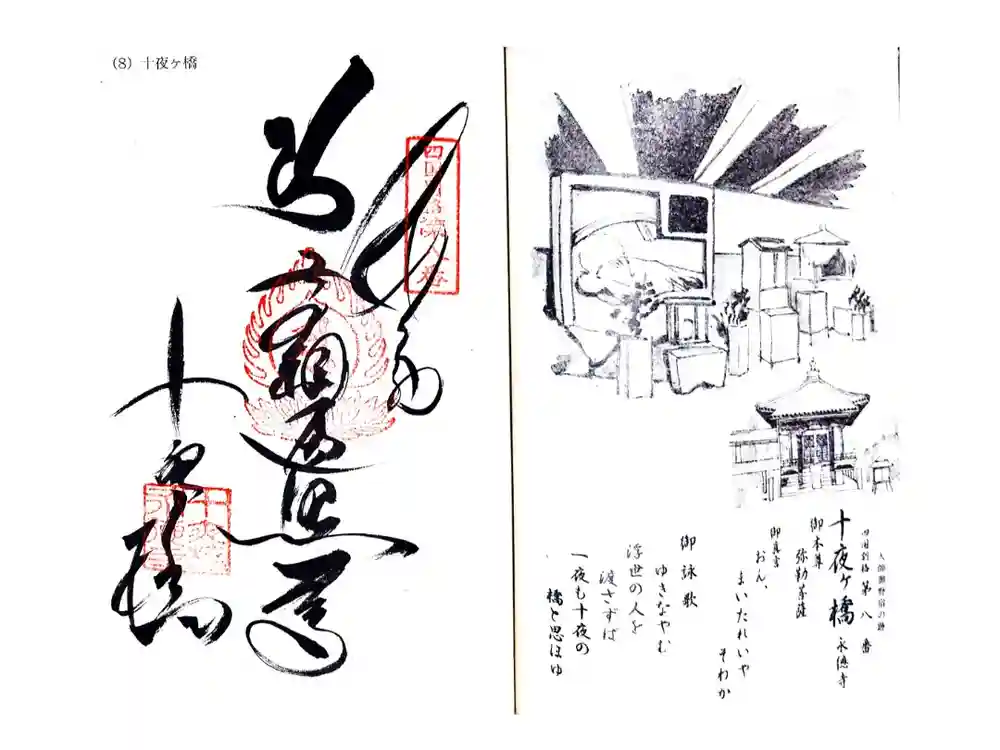 (8) 十夜ヶ橋
四国別格第八番
十夜橋
大師御野宿の跡
四国別格 第八番
十夜ヶ橋 永徳寺
御本尊
弥勒菩薩
御真言
おん、
まいたれいや
そわか
御詠歌
ゆきなやむ
浮世の人を
渡さずば
一夜も十夜の
橋と思ほゆ